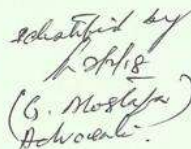 identified by
(G. Mostafa)
Advocate.